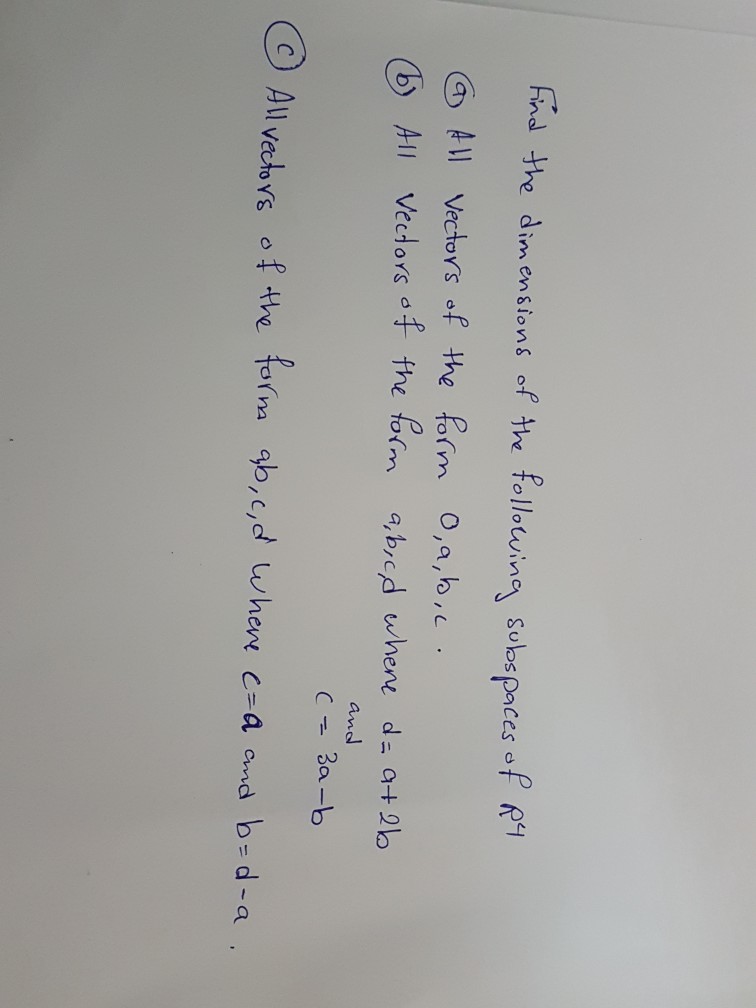 Find the dimensions of the following subspaces of R4
(a) All vectors of the form 0,a,b,c.
(b) All vectors of the form a,b,c,d where d=a+2b
and
c=3a-b
(c) All vectors of the form a,b,c,d where c=a and b=d-a.